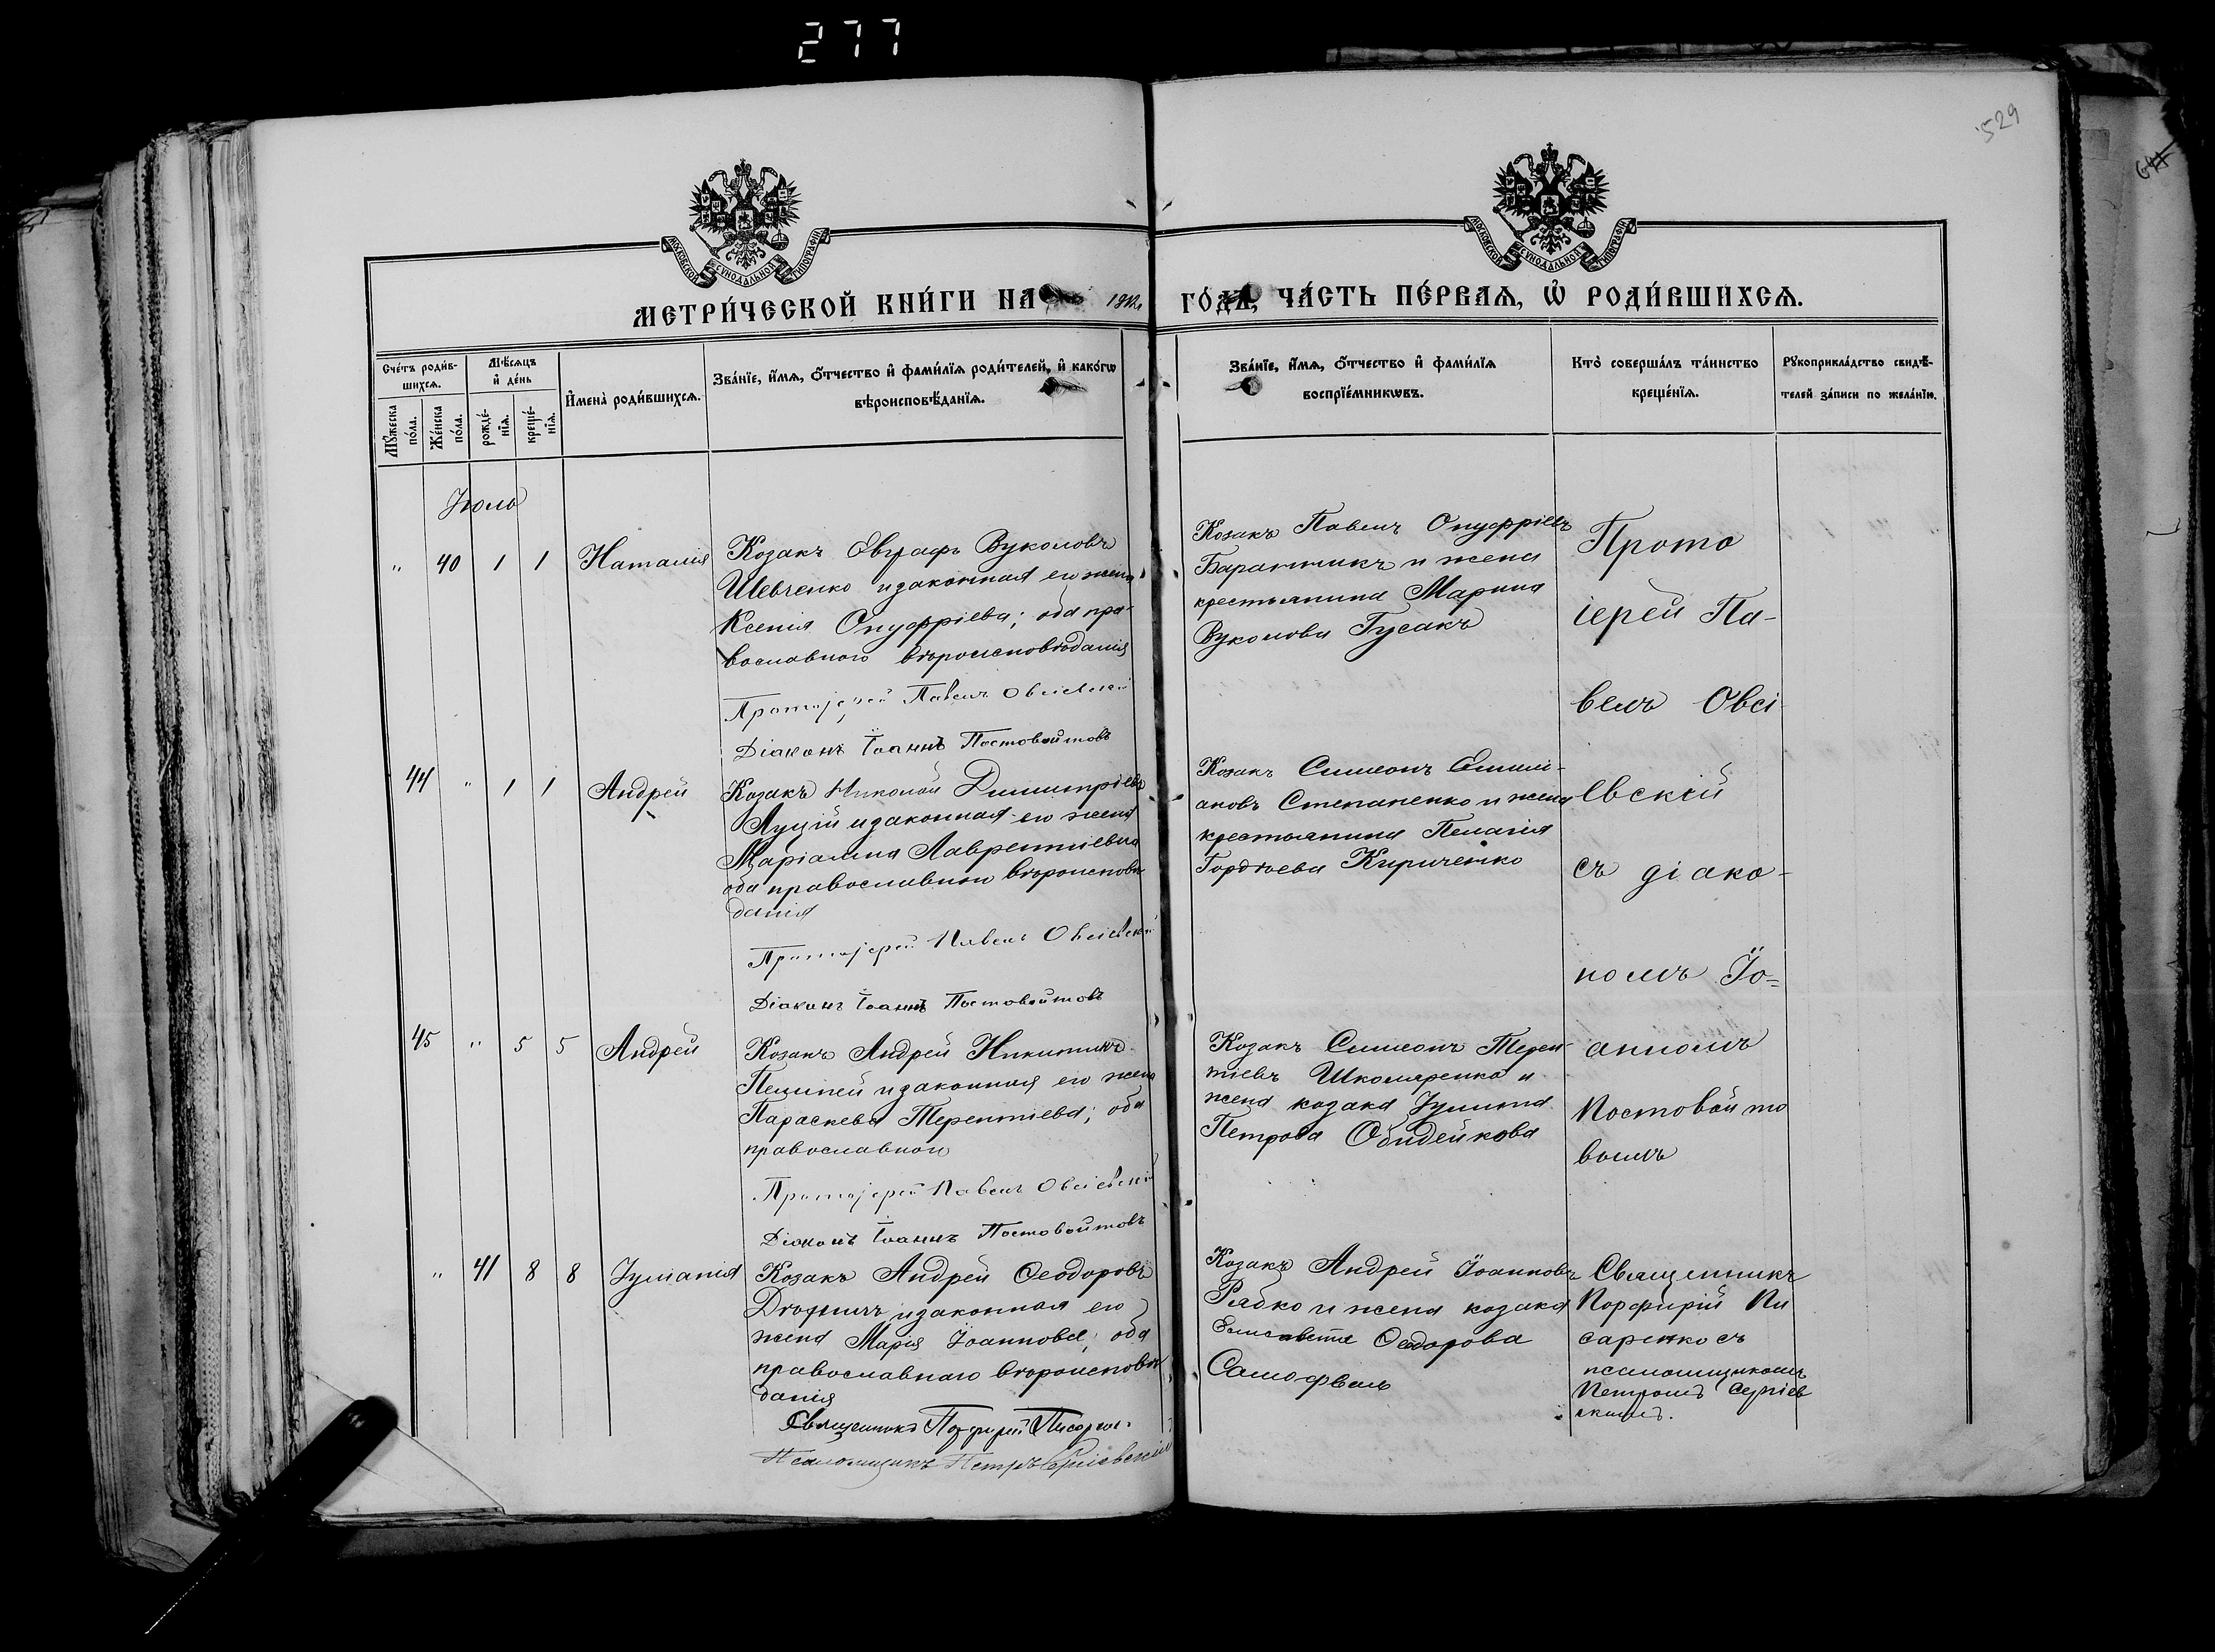 277
529
МОСКОВСКОЙ СѴНОДАЛЬНОЙ ТИПОГРАФІИ
МОСКОВСКОЙ СѴНОДАЛЬНОЙ ТИПОГРАФІИ
МЕТРИ́ЧЕСКОЙ КНИ́ГИ НА
ГО́ДЪ, ЧА́СТЬ ПЕ́РВАЯ, Ѡ҆ РОДИ́ВШИХСЯ.
Сче́тъ роди́в-
шихся.
Мѣ́сяцъ
и҆ де́нь
Мꙋ́жеска по́ла.
Же́нска по́ла.
рожде́-
нїѧ.
креще́-
нїѧ.
И҆мена̀ роди́вшихся.
Зва́нїе, и҆́мѧ, ѻ҆́тчество и҆ фами́лїѧ роди́телей, и҆ како́гѡ
вѣроисповѣ́данїѧ.
Зва́нїе, и҆́мѧ, ѻ҆́тчество и҆ фами́лїѧ
воспрїе́мникѡвъ.
Кто̀ соверша́лъ та́инство
креще́нїѧ.
Рꙋкоприкла́дство свидѣ́-
телей за́писи по жела́нїю.
Іюль
" 40 1 1 Наталія
Козакъ Евграфъ Вуколовъ
Шевченко и законная его жена
Ксенія Онуфріева; оба пра-
вославного вѣроисповѣданія
Протоіерей Павелъ Овсіевскій
Діаконъ Іоаннъ Постовойтовъ
Козакъ Павелъ Онуфріевъ
Баранникъ и жена
крестьянина Марина
Вуколова Гусакъ
Прото
іерей Па-
велъ Овсі
евскій
съ діако-
номъ Іо-
анномъ
Постовойто
вымъ
44 " 1 1 Андрей
Козакъ Николай Димитріевъ
Луцій и законная его жена
Маріамна Лаврентіевна
оба православнои вѣроисповѣ
данія
Протоіерей Павелъ Овсіевскій
Діаконъ Іоаннъ Постовойтовъ
Козакъ Симеонъ Емили-
ановъ Степаненко и жена
крестьянина Пелагія
Гордѣева Кириченко
45 " 5 5 Андрей
Козакъ Андрей Никитинъ
и законная его жена
Параскева Терентіева; оба
православнои
Протоіерей Павелъ Овсіевскій
Діаконъ Іоаннъ Постовойтовъ
Козакъ Симеонъ Терен-
тіевъ Школяренко и
жена козака Іулита
Петрова Обидейкова
" 41 8 8 Іуліанія
Козакъ Андрей Ѳеодоровъ
и законная его
жена Марія Іоаннова; оба
православнаго вѣроисповѣ
данія
Священникъ Порфирій Писаренко
Псаломщикъ Петръ Сергіевскій
Козакъ Андрей Іоанновъ
Рябко и жена козака
Елисавета Ѳеодорова
Самофалъ
Священникъ
Порфирій Пи
саренко съ
псаломщикомъ
Петромъ Сергіев
скимъ.